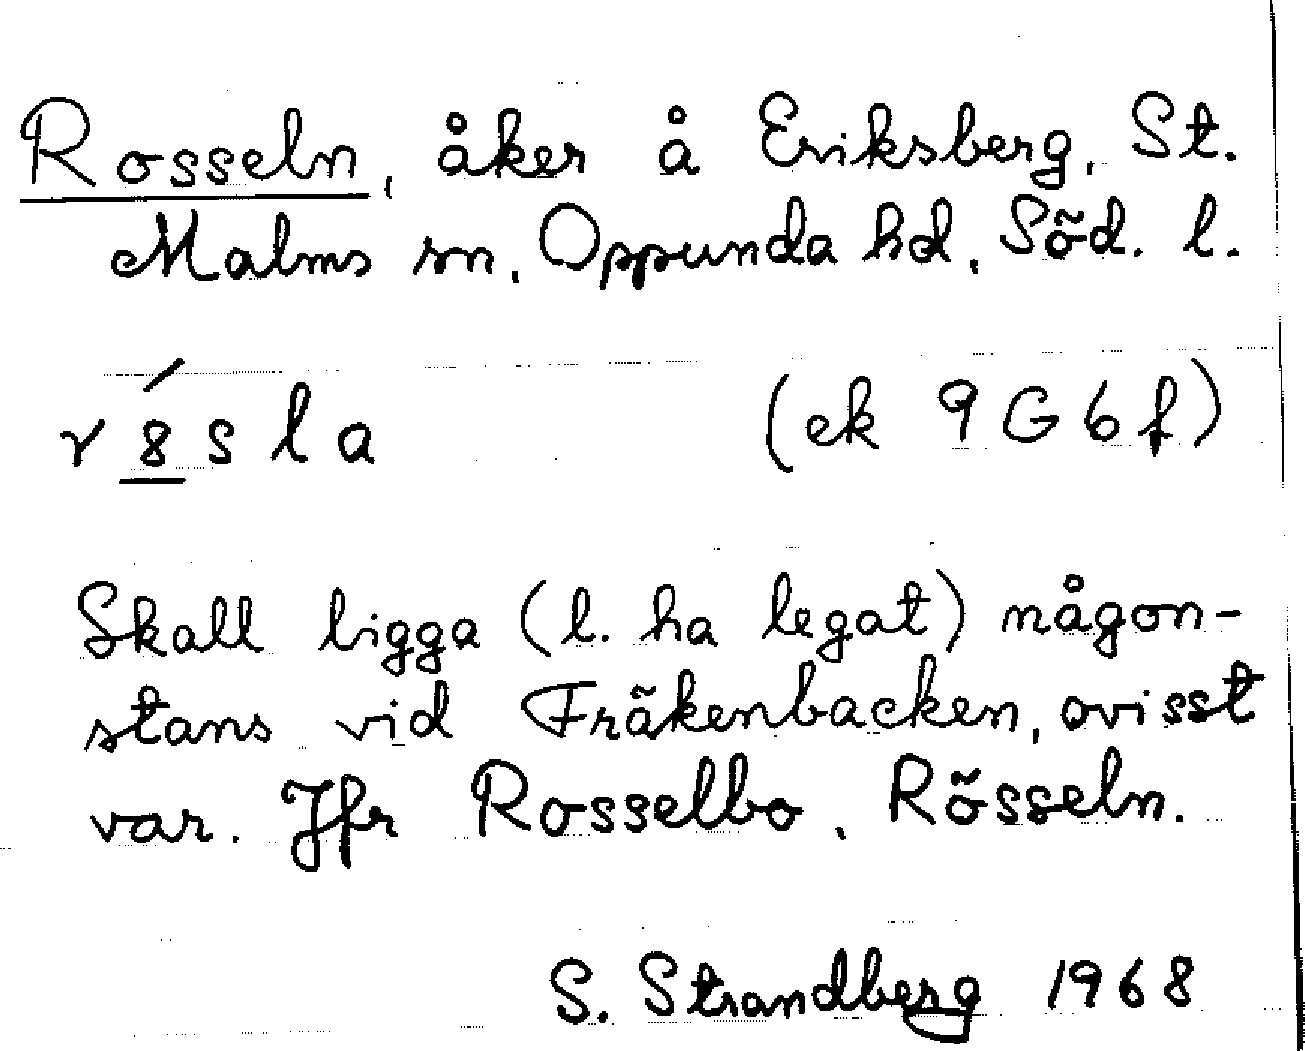 Rosseln, åker å Eriksberg, St.
Malms sn, Oppunda hd, Söd. l.
r8́sla (ek 9G6f)
Skall ligga (l. ha legat) någon-
stans vid Fräkenbacken, ovisst
var. Jfr Rosselbo, Rösseln.
S. Strandberg 1968